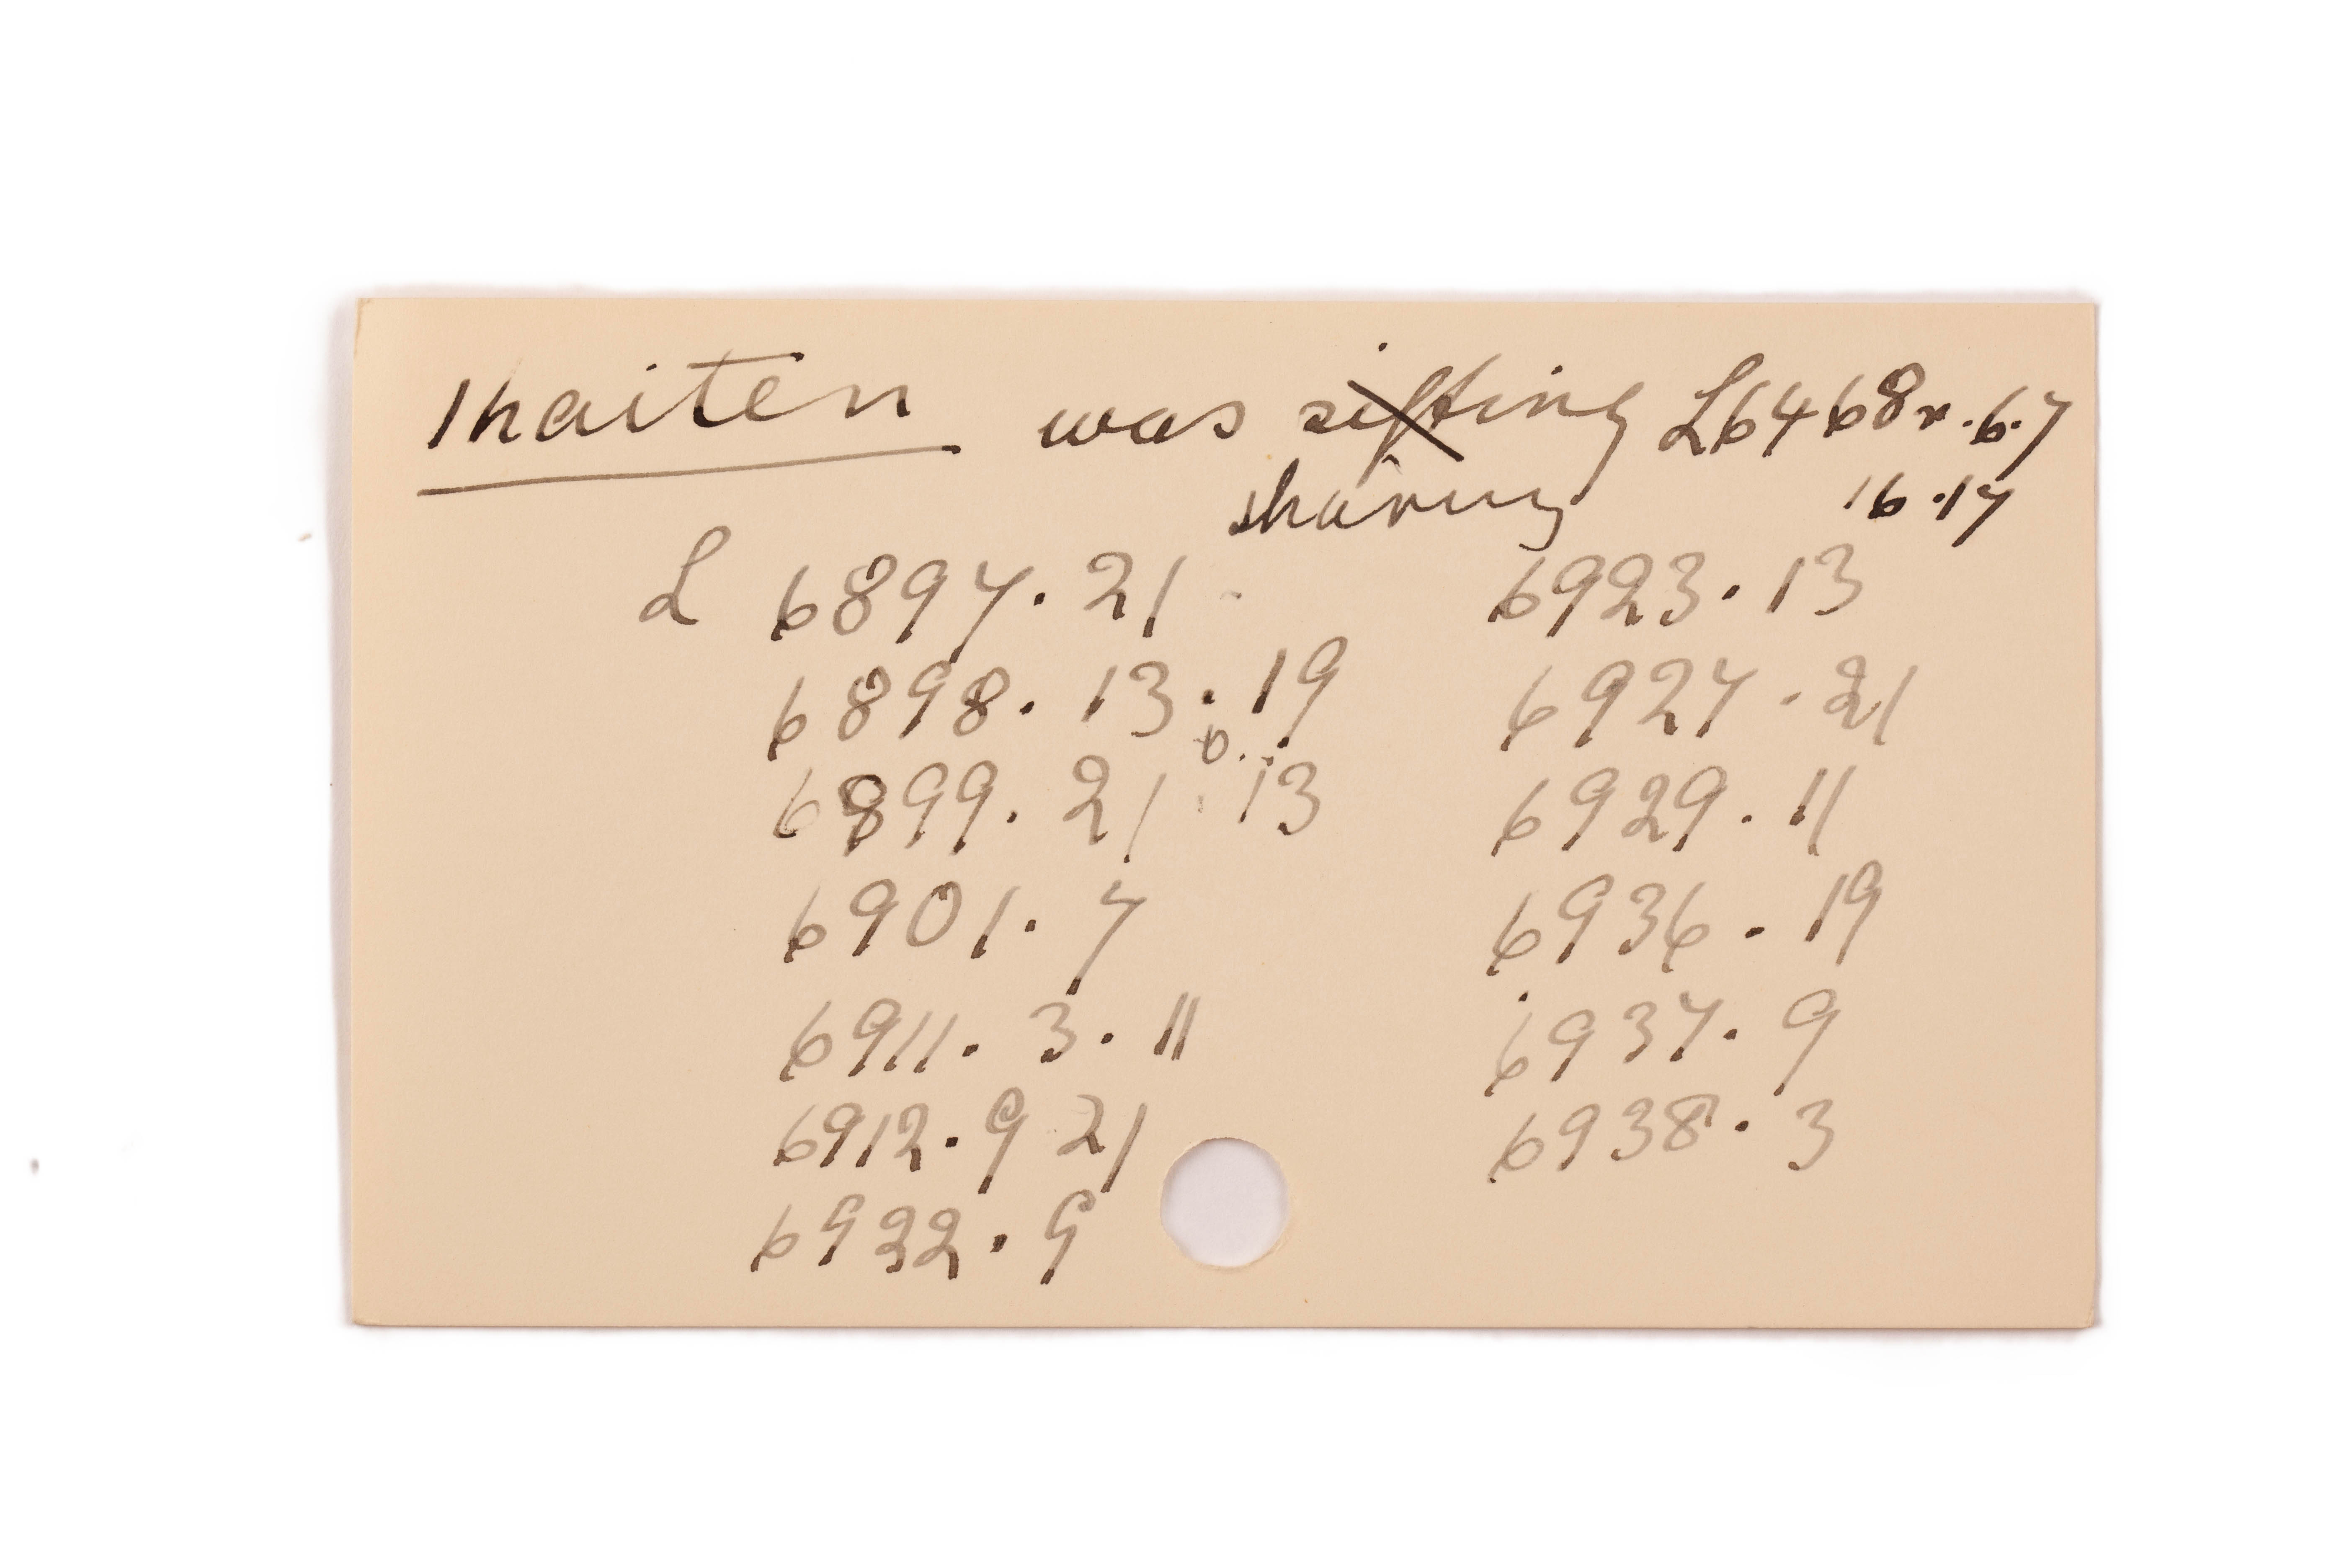 |haiten was sifting L6468r.6.7
16.17
L 6897. 21 6923. 13
6898. 13. 19 6927. 21
6899. 21. 13 6929. 11
6901. 7 6936. 19
6911. 3. 11 6937. 9
6912. 9 21 6938. 3
6922. 9